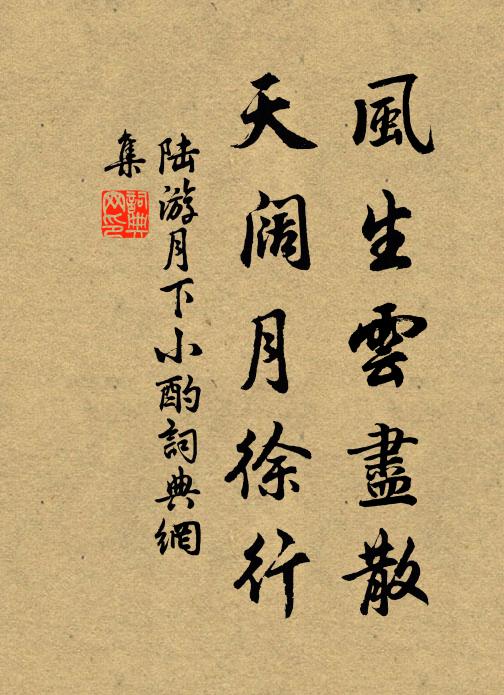 風生雲盡散
天阔月徐行
陆游月下小酌詞典網
集
詞典
网印